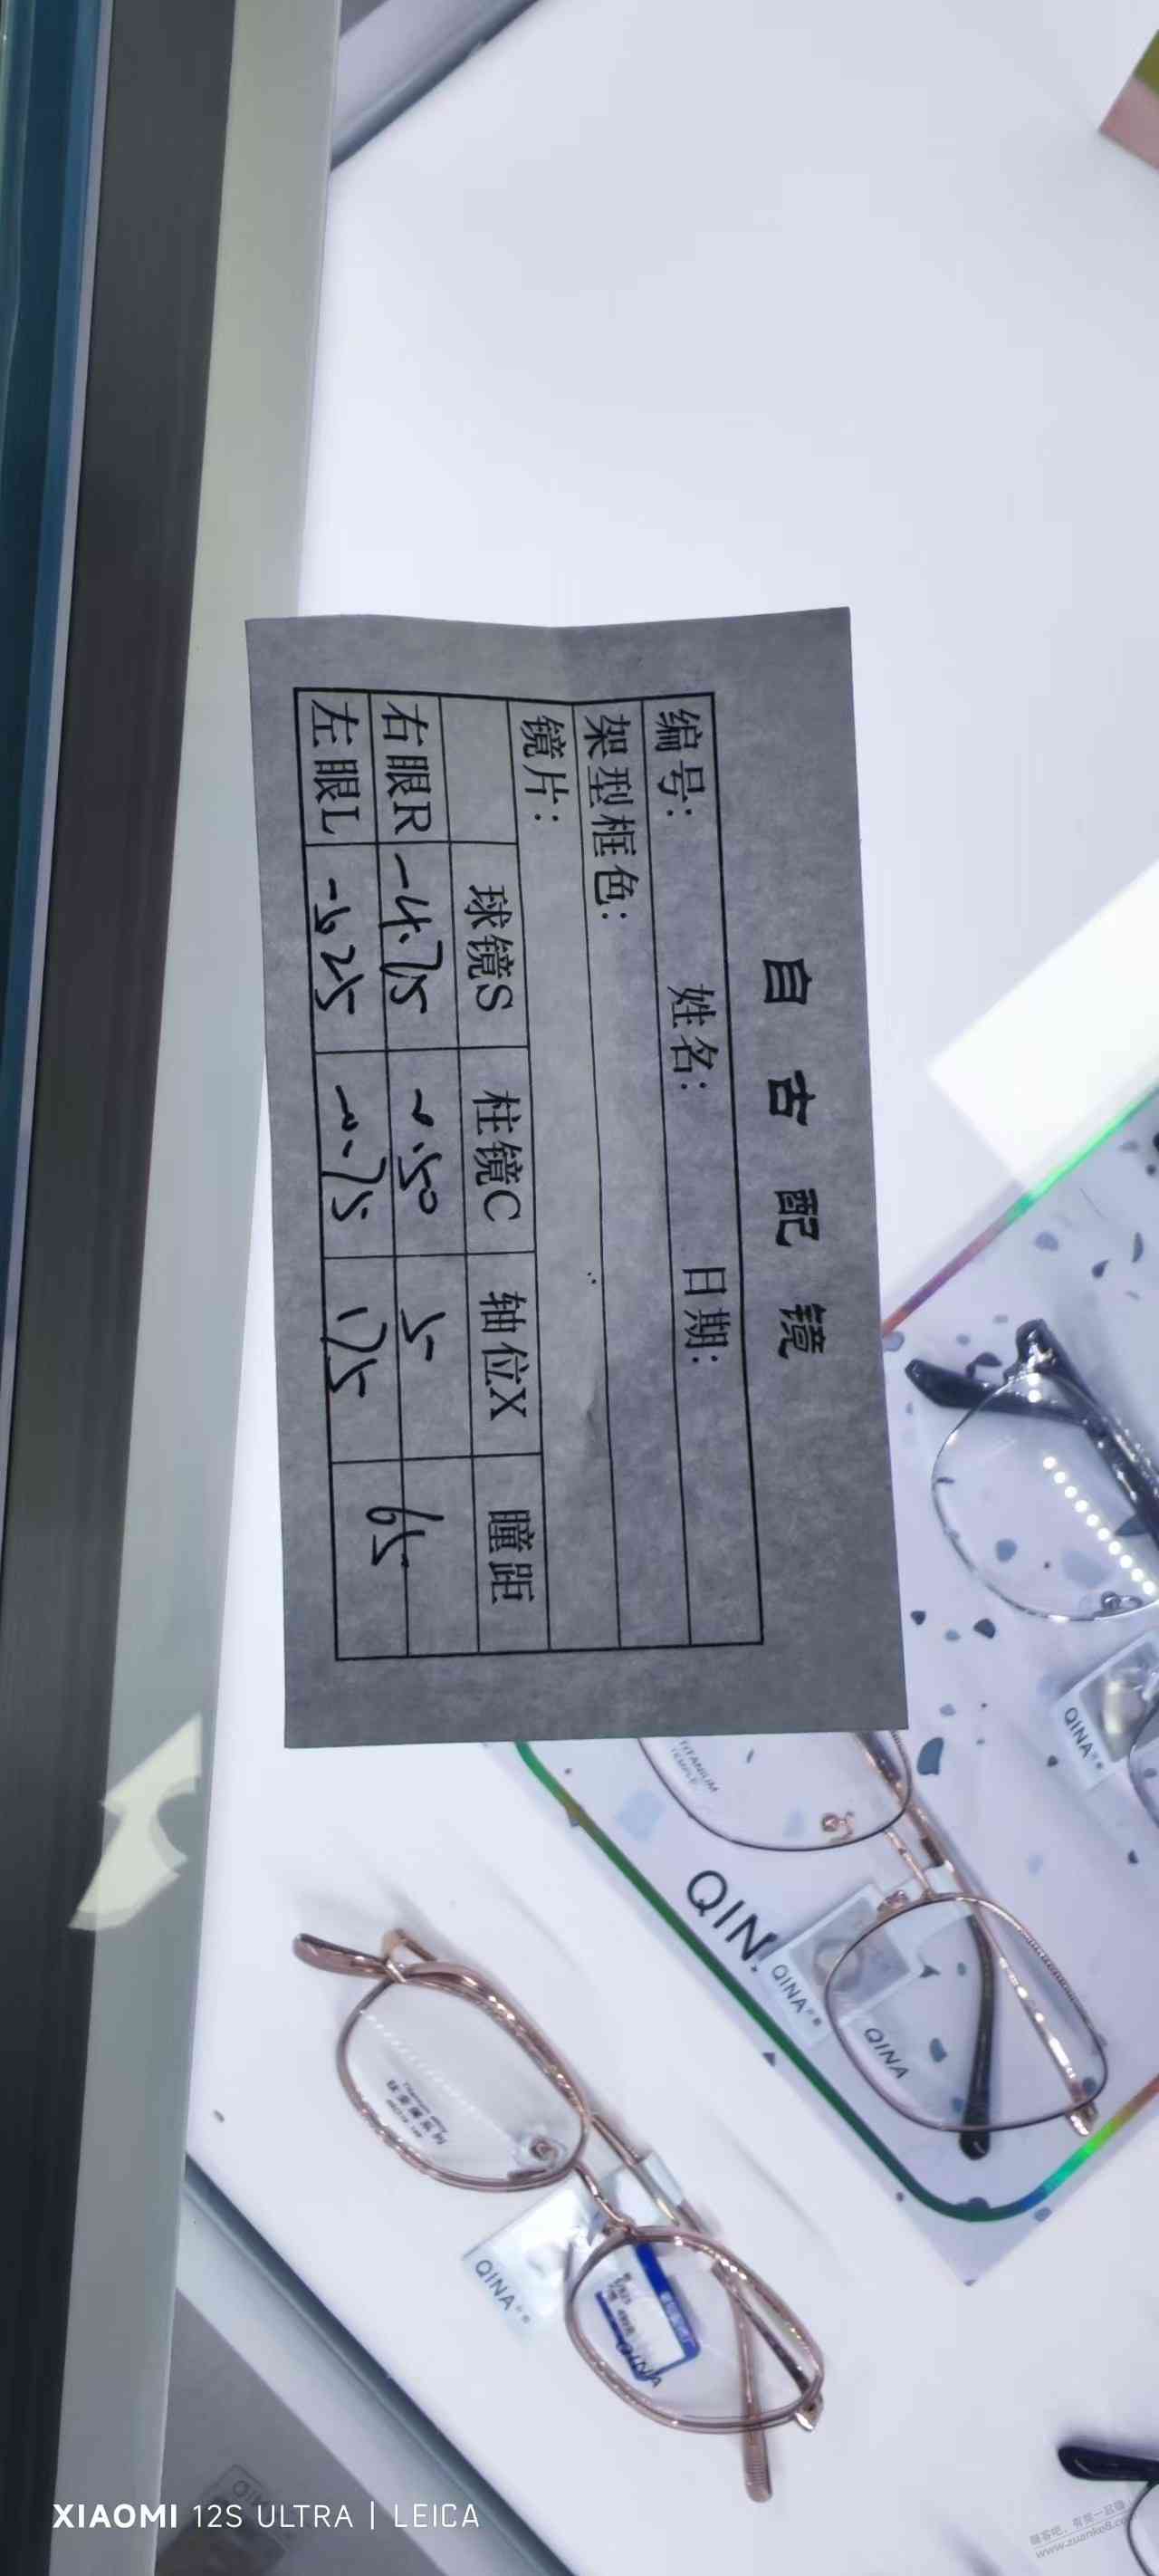 自古配镜
编号: 姓名: 日期:
架型框色:
镜片:
球镜S 柱镜C 轴位X 瞳距
右眼R -4.75 -0.50 5 65
左眼L 25 -0.75 175
TITANIUM
TEMPLE
QINA
QIN
QINA
QINA
QINA
QINA
XIAOMI 12S ULTRA | LEICA
www.zuanke8.com